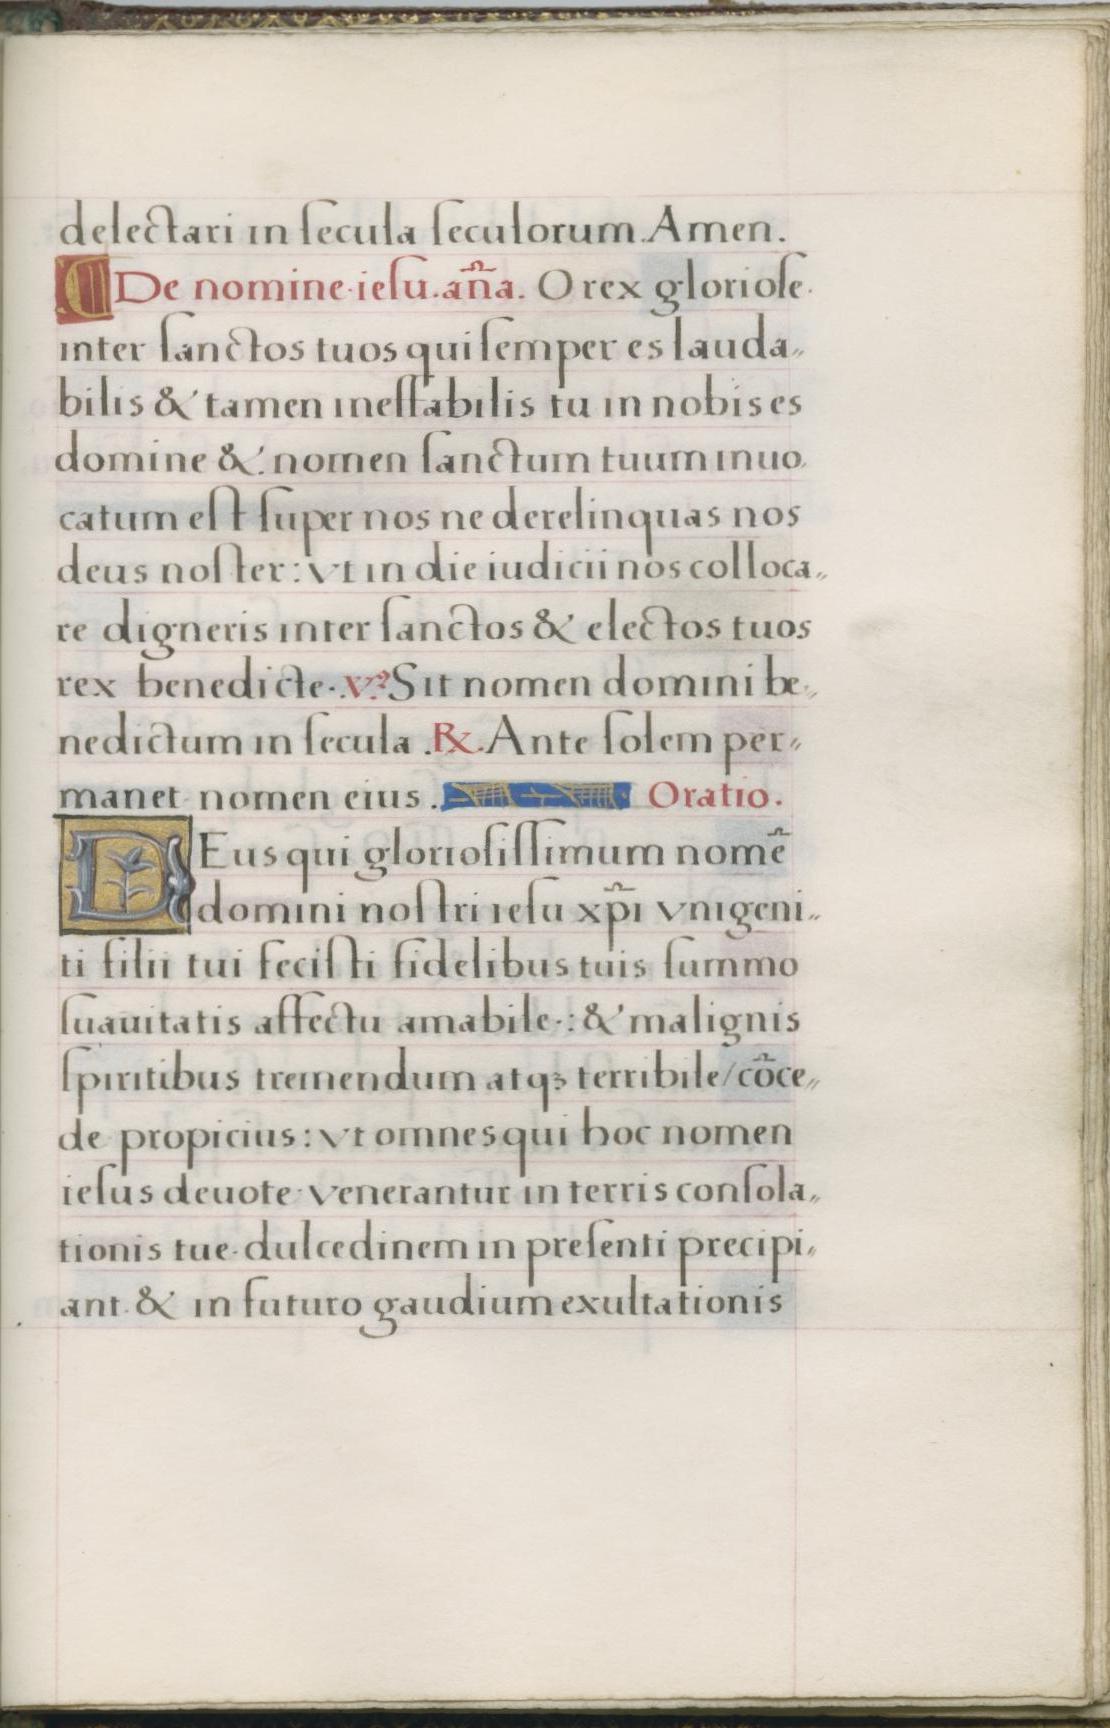 delectari in ſecula ſeculorum. Amen.
De nomine ieſu. an̄a. O rex glorioſe
inter ſanctos tuos qui ſemper es lauda„
bilis & tamen ineffabilis tu in nobis es
domine & nomen ſanctum tuum inuo„
catum eſt ſuper nos ne derelinquas nos
deus noſter: vt in die iudicii nos colloca„
re digneris inter ſanctos & electos tuos
rex benedicte. ℣. Sit nomen domini be„
nedictum in ſecula. ℟. Ante ſolem per„
manet nomen eius. Oratio.
DEus qui glorioſiſſimum nomē
domini noſtri ieſu xp̄i vnigeni„
ti filii tui feciſti fidelibus tuis ſummo
ſuauitatis affectu amabile: & malignis
ſpiritibus tremendum atqꝫ terribile/ cōce„
de propicius: vt omnes qui hoc nomen
ieſus deuote venerantur in terris conſola„
tionis tue dulcedinem in preſenti precipi„
ant. & in futuro gaudium exultationis